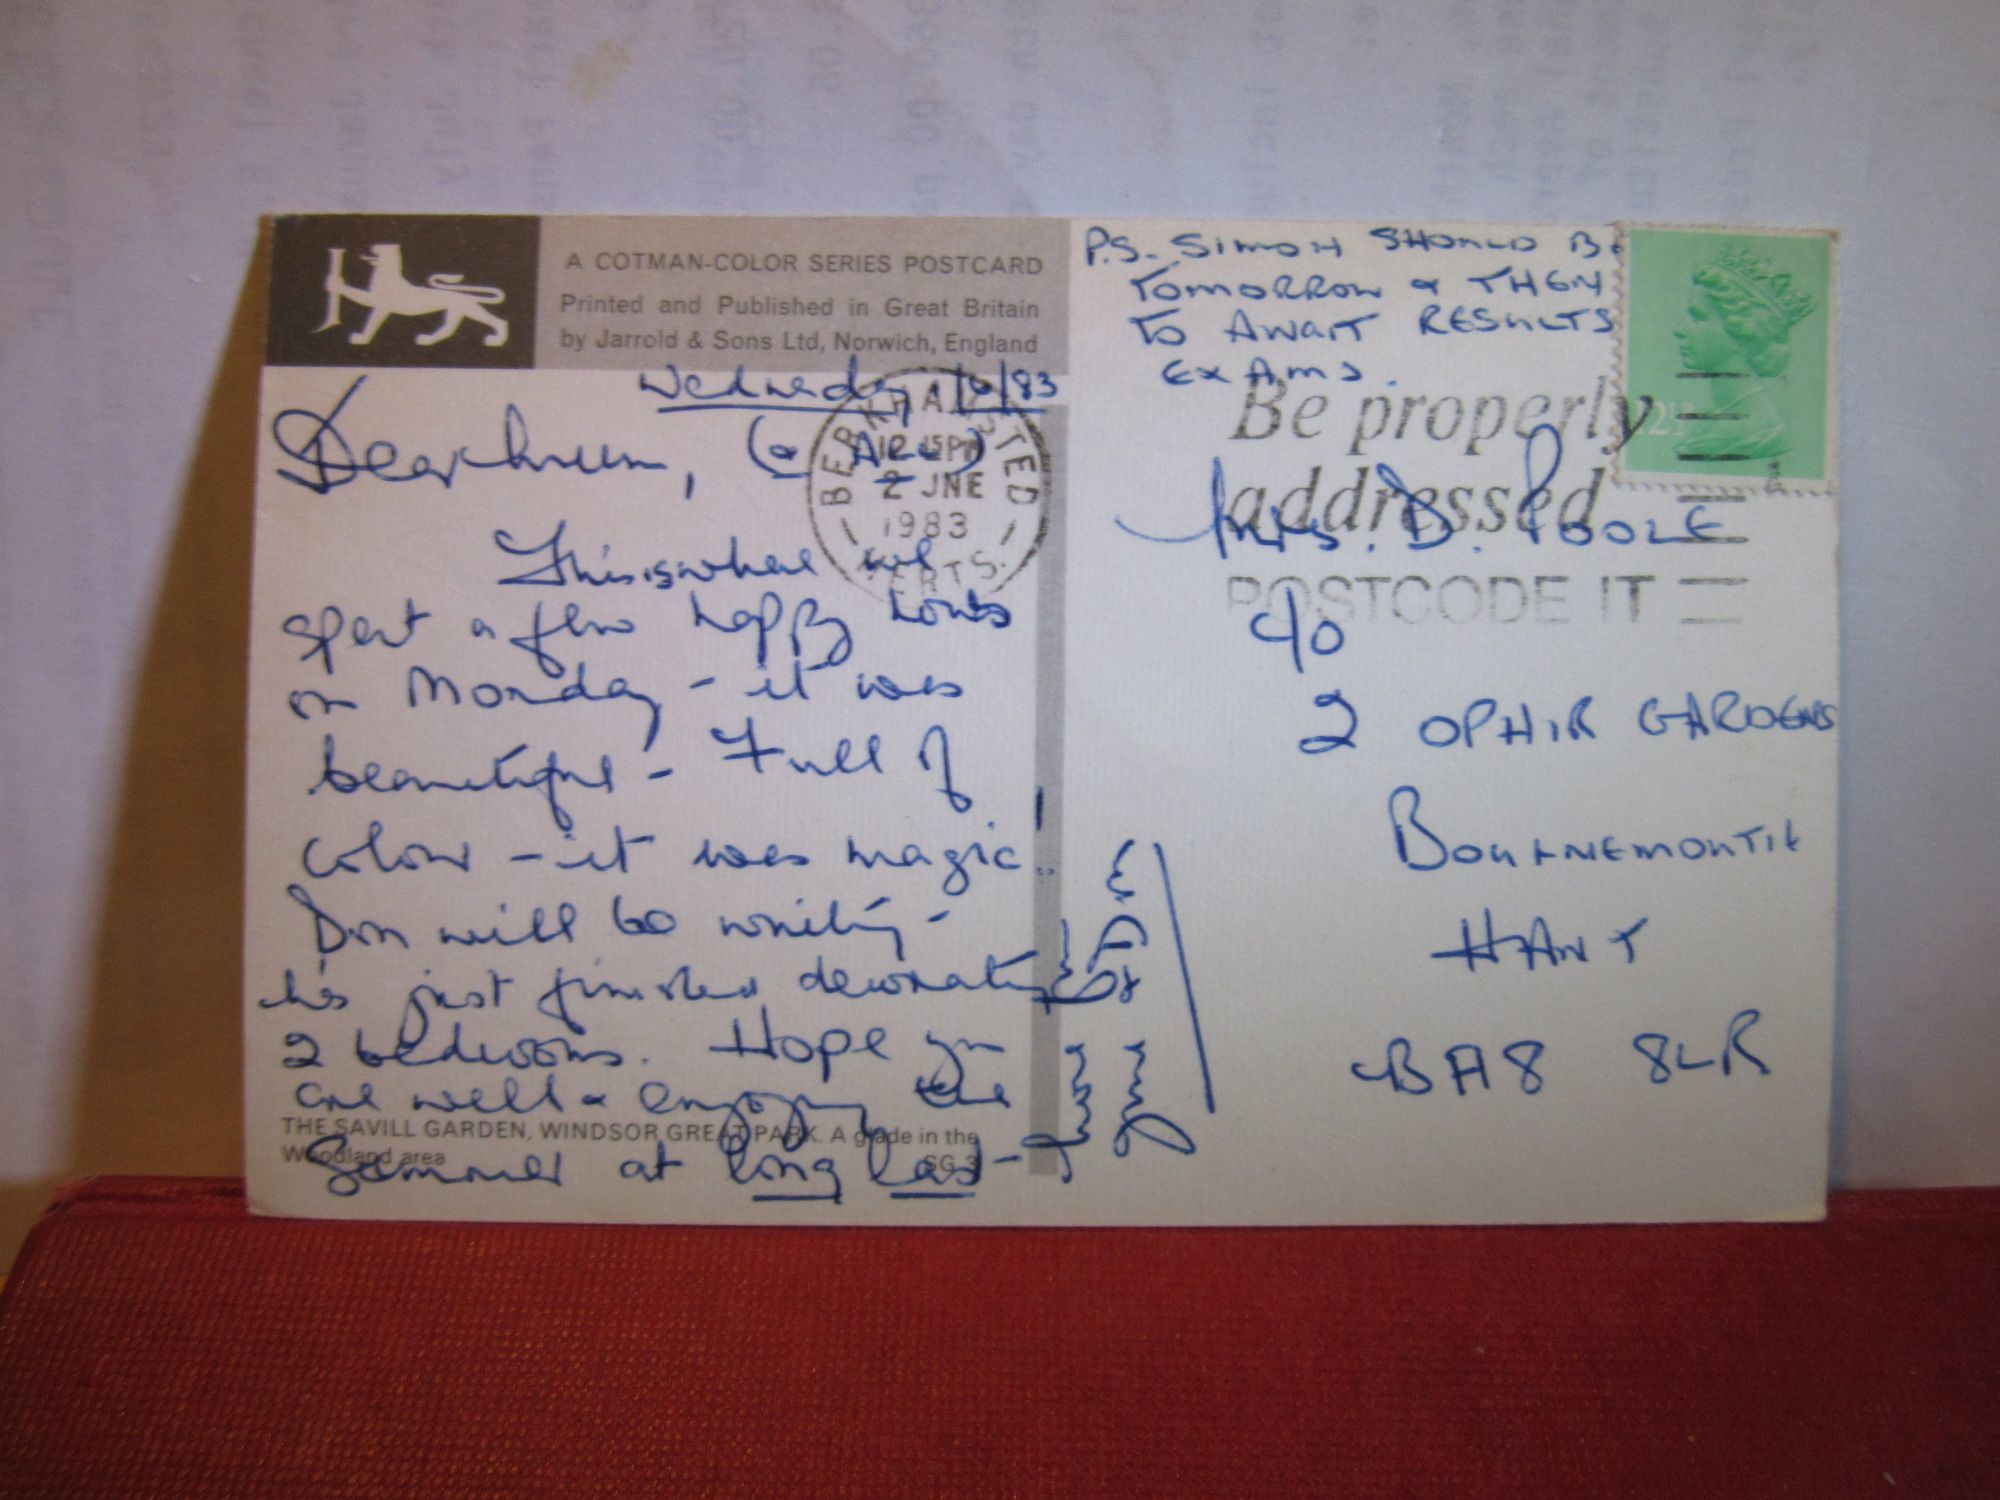 A COTMAN-COLOR SERIES POSTCARD
Printed and Published in Great Britain
by Jarrold & Sons Ltd, Norwich, England
Wednesday 1/6/83
Dear Mum, (& ALL)
This is where we
spent a few happy hours
on Monday - it was
beautiful - Full of
colour - it was magic!!
Don will be writing -
he's just finished decorating
2 bedrooms. Hope you
are well & enjoying the
Summer at long last -
THE SAVILL GARDEN, WINDSOR GREAT PARK. A glade in the
Woodland area SG 3
P.S. SIMON SHOULD B
TOMORROW & THEN
TO AWAIT RESULTS
EXAMS.
BERKHAMSTED
12.15PM
2 JNE
1983
HERTS.
Be properly
addressed
POSTCODE IT
12½P
Mrs. D. POOLE
c/o
2 OPHIR GARDENS
BOURNEMOUTH
HANT
BA8 8LR